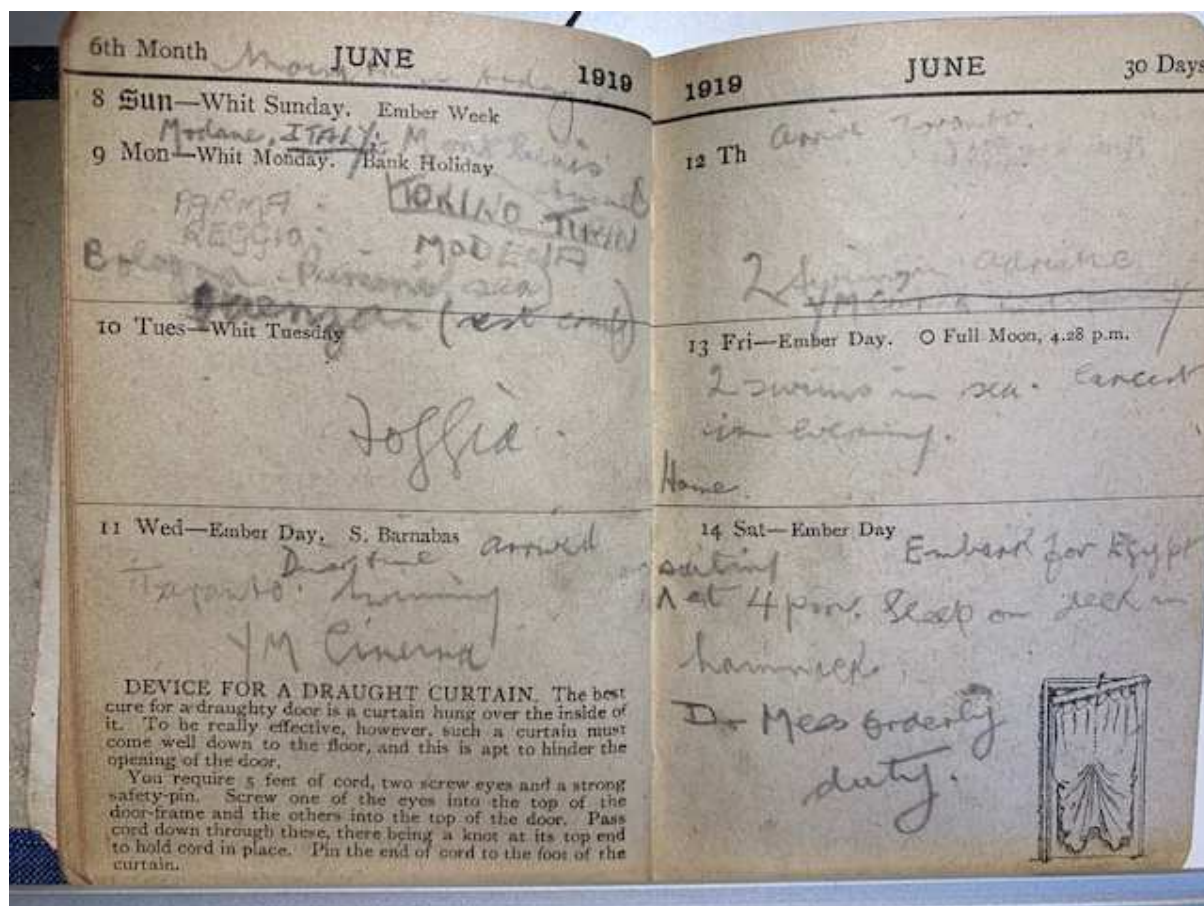 6th Month JUNE 1919
8 Sun—Whit Sunday. Ember Week
Modane, ITALY.
9 Mon—Whit Monday. Bank Holiday
PARMA - TORINO TURIN
REGGIO - MODENA
Bologna
10 Tues—Whit Tuesday
Foggia.
11 Wed—Ember Day. S. Barnabas arrived
Taranto.
YM Cinema
DEVICE FOR A DRAUGHT CURTAIN. The best
cure for a draughty door is a curtain hung over the inside of
it. To be really effective, however, such a curtain must
come well down to the floor, and this is apt to hinder the
opening of the door.
You require 5 feet of cord, two screw eyes and a strong
safety-pin. Screw one of the eyes into the top of the
door-frame and the others into the top of the door. Pass
cord down through these, there being a knot at its top end
to hold cord in place. Pin the end of cord to the foot of the
curtain.
1919 JUNE 30 Days
12 Th arrive Taranto.
2
13 Fri—Ember Day. O Full Moon, 4.28 p.m.
2 swims in sea. Concert
in evening.
Home.
14 Sat—Ember Day Embark for Egypt
sailing
at 4 pm. Sleep on deck in
hammock.
Do Mess orderly
duty.